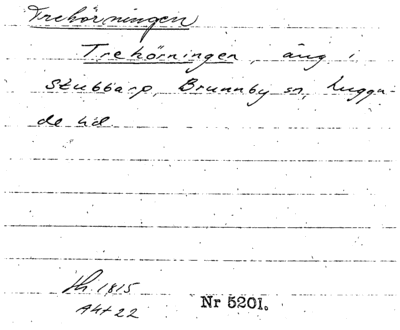 Trehörningen
Trehörningen, äng i
Stubbarp, Brunnby sn, Luggu-
de hd.
Th. 1815
Akt 22
Nr 5201.